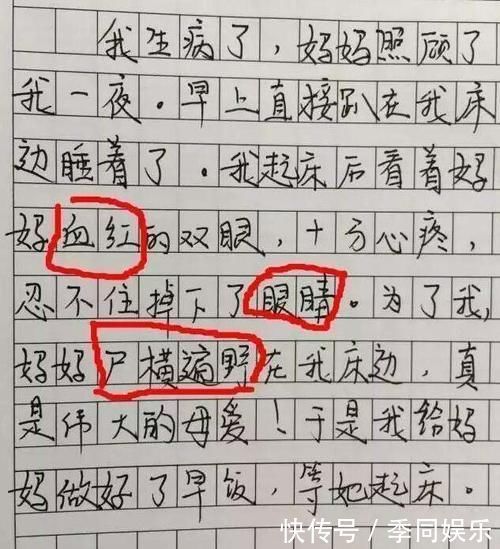 我生病了，妈妈照顾了
我一夜。早上直接趴在我床
边睡着了。我起床后看着妈
妈血红的双眼，十分心疼，
忍不住掉下了眼睛。为了我，
妈妈尸横遍野在我床边，真
是伟大的母爱！于是我给妈
妈做好了早饭，等她起床。
快传号／季同娱乐